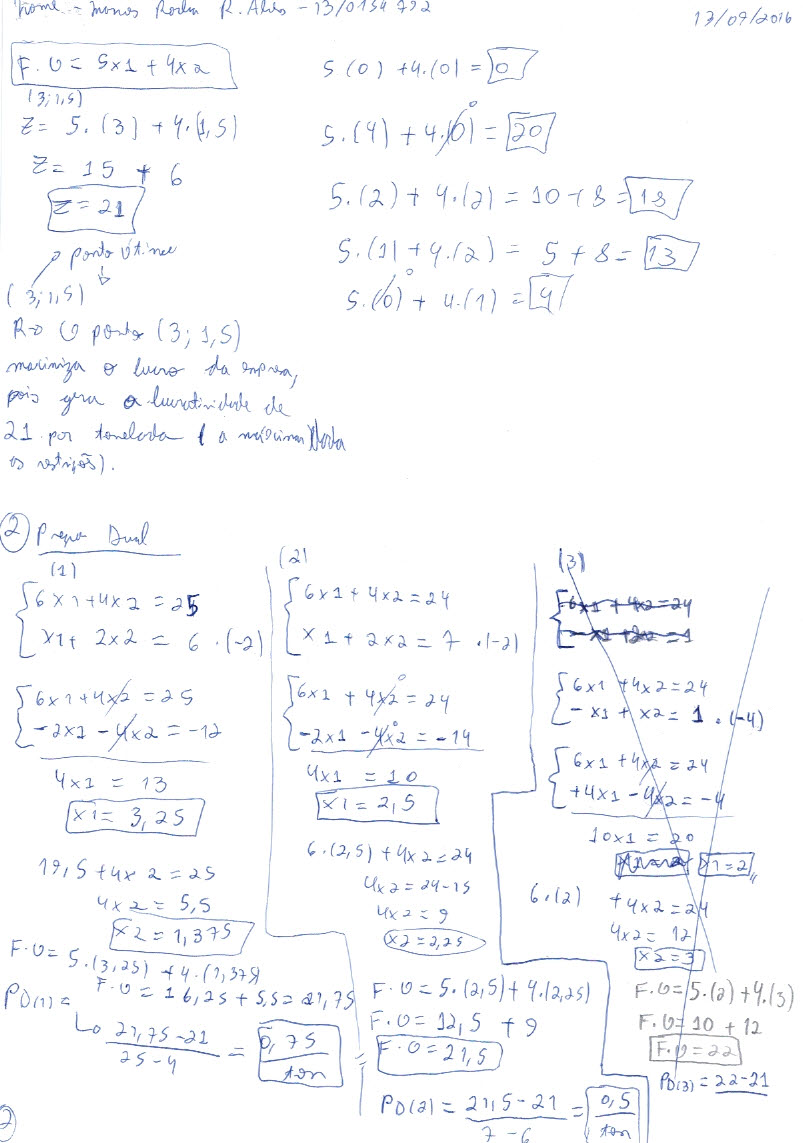 nome = 13/0154792
17/09/2016
F.O = 5x1 + 4x2
(3;1,5)
Z= 5.(3) + 4.(1,5)
Z= 15 + 6
Z=21
ponto ótimo
(3;1,5)
R→ O ponto (3; 1,5)
maximiza o lucro da empresa,
pois gera a lucratividade de
21 por tonelada ( a máxima dada
as restrições).
5.(0) + 4.(0) = 0
5.(4) + 4.(0) = 20
0
5.(2) + 4.(2) = 10 + 8 = 18
5.(1) + 4.(2) = 5 + 8 = 13
5.(0) + 4.(1) = 4
0
2 Dual
(1)
6x1+4x2 = 25
x1+ 2x2 = 6 .(-2)
6x1+4x2 = 25
-2x1 - 4x2 = -12
4x1 = 13
x1= 3,25
19,5+4x2 = 25
4x2 = 5,5
x2 = 1,375
F.O= 5.(3,25) + 4.(1,375)
F.O = 16,25 + 5,5 = 21,75
PD(1) =
21,75-21
25-4
= 0,75
ton
(2)
6x1 + 4x2 = 24
x1 + 2x2 = 7 .(-2)
6x1 + 4x2 = 24
0
-2x1 - 4x2 = -14
4x1 = 10
x1= 2,5
6.(2,5) + 4x2 = 24
4x2 = 24-15
4x2 = 9
x2=2,25
F.O = 5.(2,5) + 4.(2,25)
F.O = 12,5 + 9
F.O = 21,5
PD(2) = 21,5-21 = 0,5
7-6 ton
(3)
6x1 + 4x2 = 24
-x1 + x2 = 1
6x1 + 4x2 = 24
-x1 + x2 = 1 .(-4)
6x1 + 4x2 = 24
+4x1 - 4x2 = -4
10x1 = 20
x1=2
6.(2) + 4x2 = 24
4x2 = 12
x2 = 3
F.O = 5.(2) + 4.(3)
F.O = 10 + 12
F.O = 22
PD(3) = 22-21
2